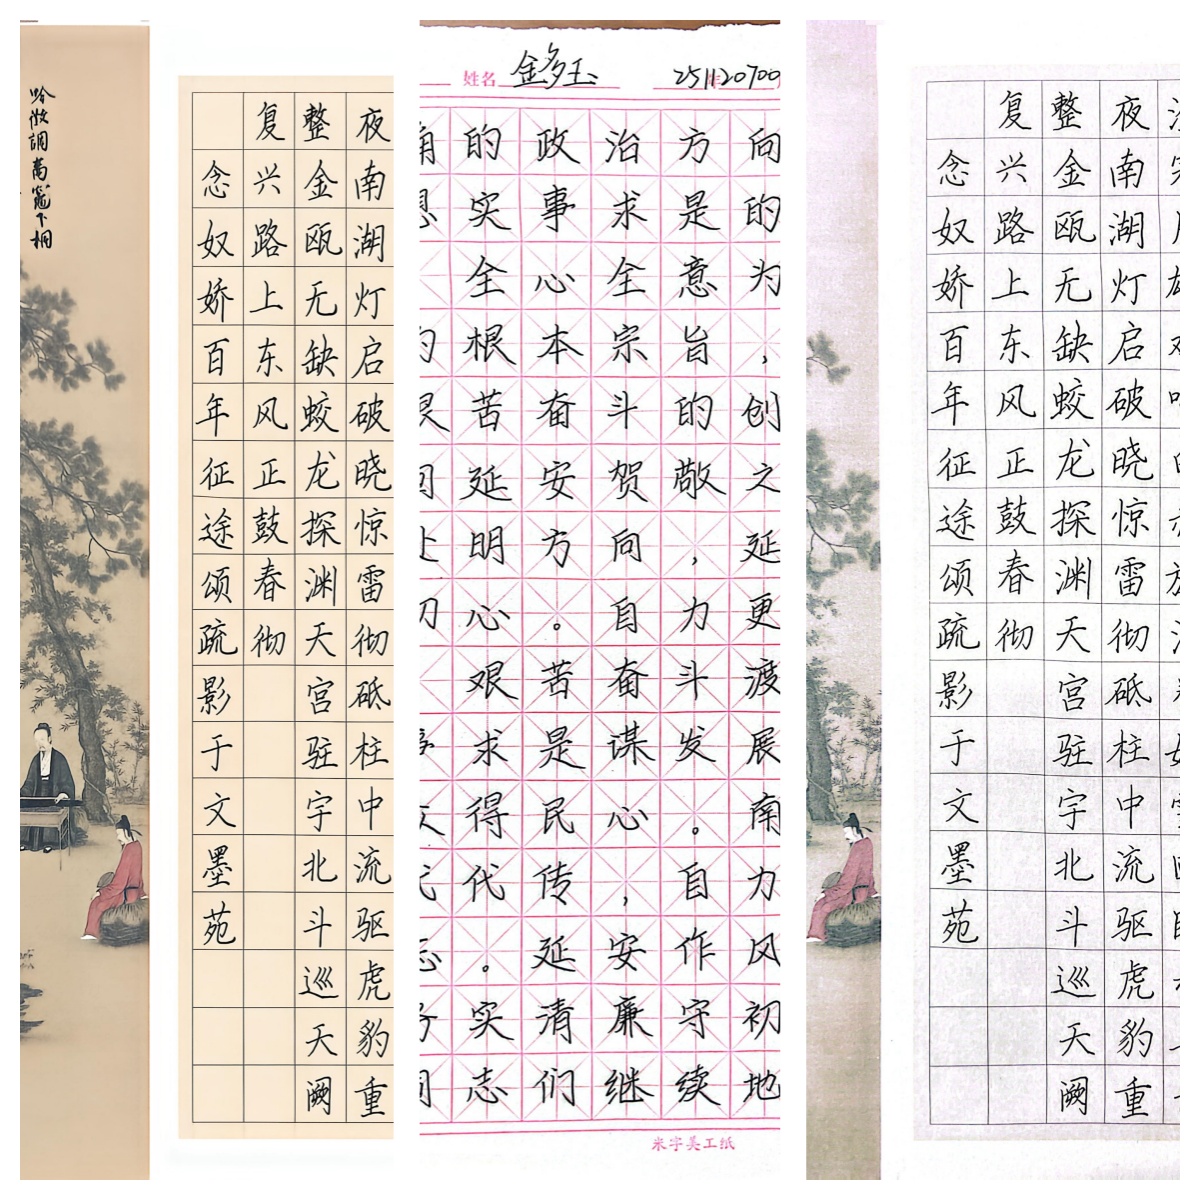 吟徵調商竈下桐
夜南湖灯启破晓惊雷彻砥柱中流驱虎豹重
整金瓯无缺蛟龙探渊天宫驻宇北斗巡天阙
复兴路上东风正鼓春彻
念奴娇百年征途颂疏影于文墨苑
姓名 金多玉 251120700
的政治方向
实事求是的
全心全意为
的根本宗旨，
艰苦奋斗的创
延安贺敬之
上明方向，延
初心。自力更
艰苦奋斗渡
求是谋发展
得民心。南
代传，自力
志。延安作风
务实清廉守初
同志们继续地
米字美工纸
夜南湖灯启破晓惊雷彻砥柱中流驱虎豹重
整金瓯无缺蛟龙探渊天宫驻宇北斗巡天阙
复兴路上东风正鼓春彻
念奴娇百年征途颂疏影于文墨苑